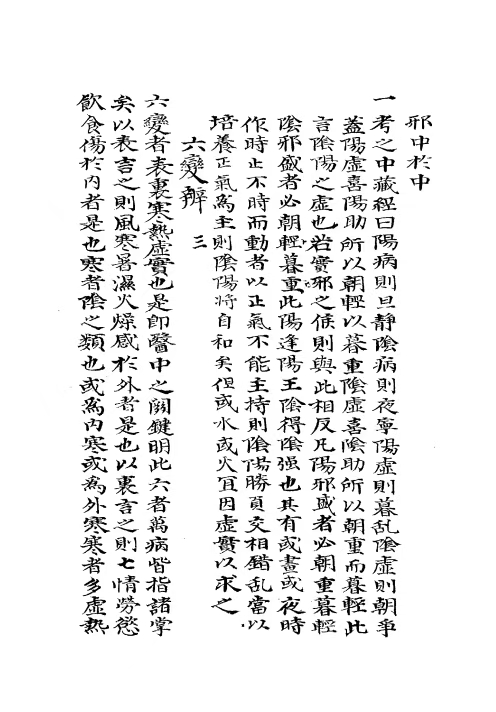 邪中於中
一考之中藏經曰陽病則旦靜陰病則夜寧陽虛則暮乱陰虛則朝爭
蓋陽虛喜陽助所以朝輕以暮重陰虛喜陰助所以朝重而暮輕此
言陰陽之虛也若實邪之候則與此相反凡陽邪盛者必朝重暮輕
陰邪盛者必朝輕暮重此陽逢陽王陰得陰强也其有或晝或夜時
作時止不時而動者以正氣不能主持則陰陽勝負交相錯乱當以
培養正氣為主則陰陽將自和矣但或水或火冝因虛實以求之
六變辨 三
六變者表裏寒熱虛實也是即醫中之關鍵明此六者萬病皆指諸掌
矣以表言之則風寒暑濕火燥感於外者是也以裏言之則七情勞慾
飲食傷於內者是也寒者陰之類也或為內寒或為外寒寒者多虛熱